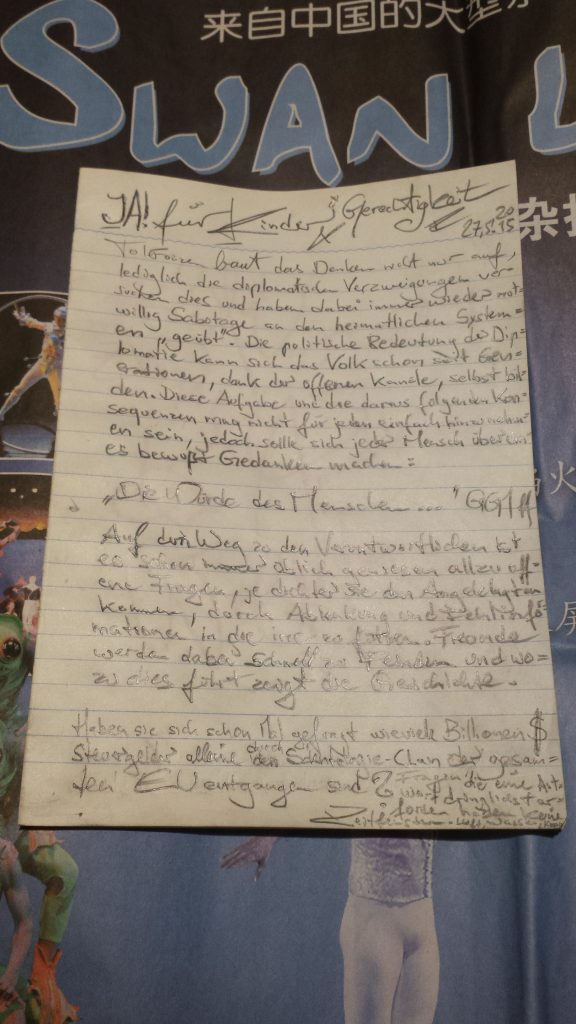 来自中国的大型杂
SWAN L
JA! für Kinder Gerechtigkeit
27.5.2015
baut das Denken nicht nur auf,
lediglich die diplomatischen Verzweigungen ver-
suchen dies und haben dabei immer wieder mut-
willig Sabotage an den heimatlichen System=
en „geübt". Die politische Bedeutung der Dip-
lomatie kann sich das Volk schon seit Gen-
erationen, dank der offenen Kanäle, selbst bil-
den. Diese Aufgabe und die daraus folgenden Kon-
sequenzen mag nicht für jeden einfach hinzunehm-
en sein, jedoch sollte sich jeder Mensch über ein-
es bewußt Gedanken machen:
„Die Würde des Menschen..." GG
Auf dem Weg zu den Verantwortlichen ist
es schon üblich gewesen allzu off-
ene Fragen, je dichter sie den Angeklagten
kommen, durch Ablenkung und Fehlinfo-
mationen in die irre zu führen. Freunde
werden dabei schnell zu Feinden und wo=
zu dies führt zeigt die Geschichte.
Haben sie sich schon Mal gefragt wieviele Billionen $
Steuergelder alleine durch den Scientologie-Clan der gesam=
ten EU entgangen sind? Fragen die eine Ant-
wort dringlichst er-
杂
火
屏